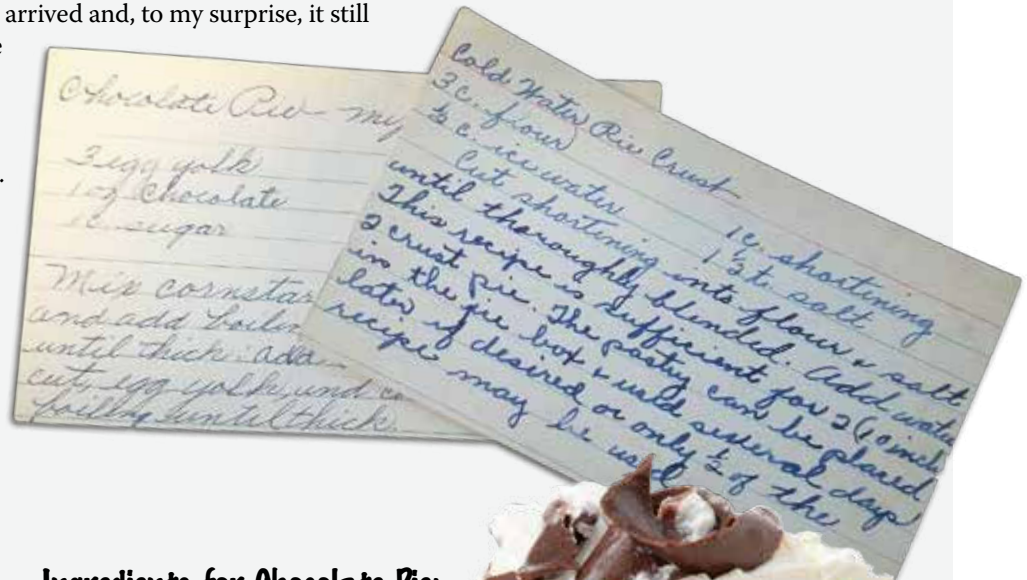 arrived and, to my surprise, it still
Chocolate Pie my
3 egg yolk
1 oz Chocolate
1 c. sugar
Mix cornstar
and add boilin
until thick. add
cut, egg yolk, and co
boiling until thick
Cold Water Pie Crust
3 c. flour 1 c. shortening
½ c. ice water 1½ t. salt
Cut shortening into flour + salt
until thoroughly blended. Add water
This recipe is sufficient for 2 (10 inch)
2 crust pie. The pastry can be placed
in the box + used several days
later if desired or only ½ of the
recipe may be used
Ingredients for Chocolate Pie: